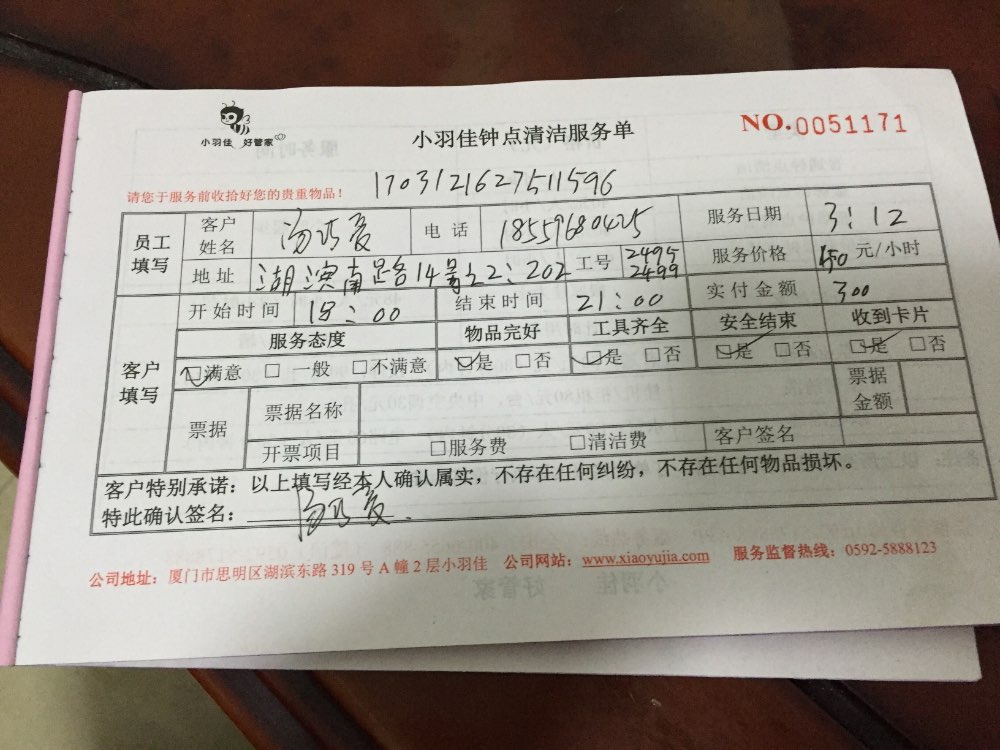 小羽佳 好管家
小羽佳钟点清洁服务单
NO.0051171
请您于服务前收拾好您的贵重物品!
170312162751 1596
员工填写 客户姓名 电话 18559680425 服务日期 3:12
地址 湖滨南路14号 202 工号 2495 2499 服务价格 元/小时
客户填写 开始时间 18:00 结束时间 21:00 实付金额 300
服务态度 物品完好 工具齐全 安全结束 收到卡片
□满意 □一般 □不满意 □是 □否 □是 □否 □是 □否 □是 □否
票据 票据名称 票据金额
开票项目 □服务费 □清洁费 客户签名
客户特别承诺:以上填写经本人确认属实,不存在任何纠纷,不存在任何物品损坏。
特此确认签名:
公司地址:厦门市思明区湖滨东路 319 号 A 幢 2 层小羽佳 公司网站:www.xiaoyujia.com 服务监督热线:0592-5888123